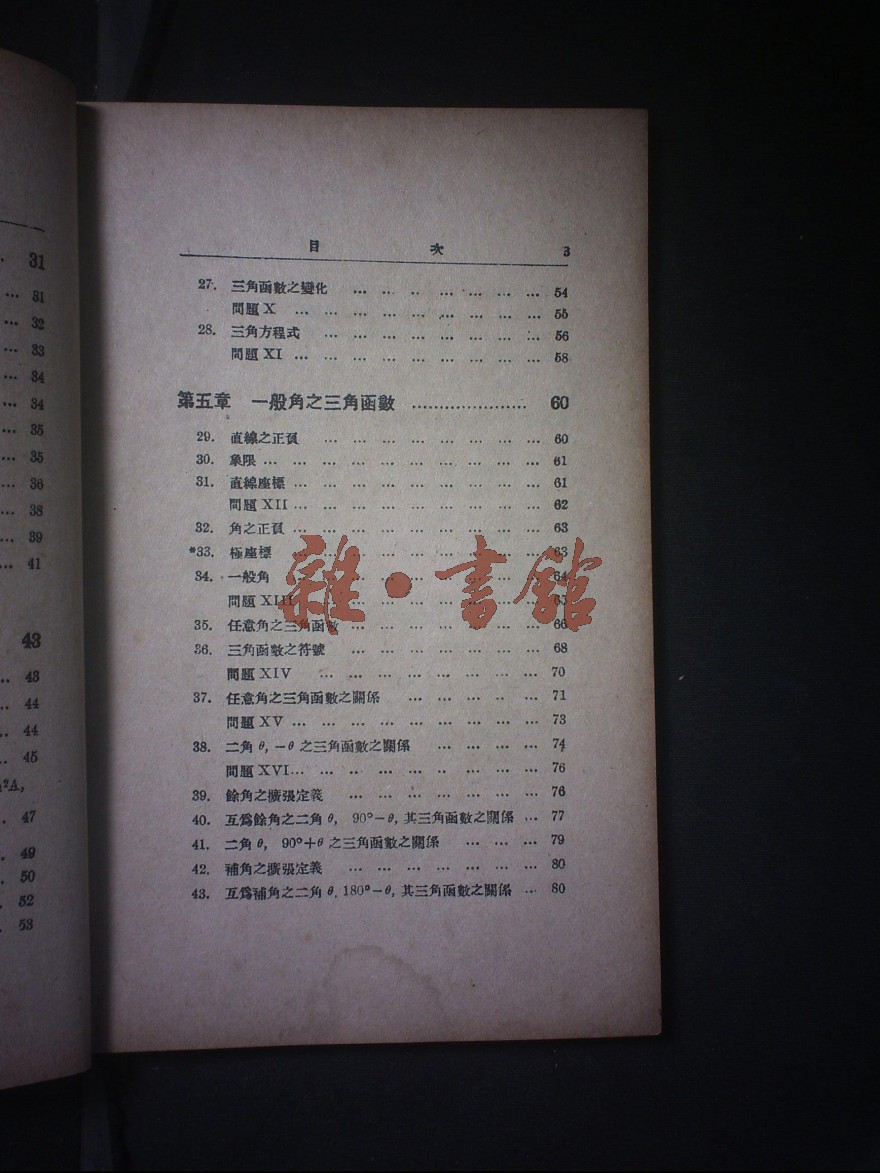 31
31
32
33
34
34
35
35
36
38
39
41
43
43
44
44
45
²A,
47
49
50
52
53
目 次 3
27. 三角函數之變化 … … … … … … … 54
問題 X … … … … … … … … … 55
28. 三角方程式 … … … … … … … … 56
問題 XI … … … … … … … … … 58
第五章 一般角之三角函數 ………………… 60
29. 直線之正負 … … … … … … … … 60
30. 象限 … … … … … … … … … … 61
31. 直線座標 … … … … … … … … … 61
問題 XII … … … … … … … … … 62
32. 角之正負 … … … … … … … … … 63
*33. 極座標 … … … … … … … … … 63
34. 一般角 … … … … … … … … … 64
問題 XIII … … … … … … … … 65
35. 任意角之三角函數 … … … … … … … 66
36. 三角函數之符號 … … … … … … … 68
問題 XIV … … … … … … … … 70
37. 任意角之三角函數之關係 … … … … … 71
問題 XV … … … … … … … … … 73
38. 二角 θ, −θ 之三角函數之關係 … … … … 74
問題 XVI … … … … … … … … … 76
39. 餘角之擴張定義 … … … … … … … 76
40. 互爲餘角之二角 θ, 90°−θ, 其三角函數之關係 … 77
41. 二角 θ, 90°+θ 之三角函數之關係 … … … 79
42. 補角之擴張定義 … … … … … … … 80
43. 互爲補角之二角 θ, 180°−θ, 其三角函數之關係 … 80
雜·書館